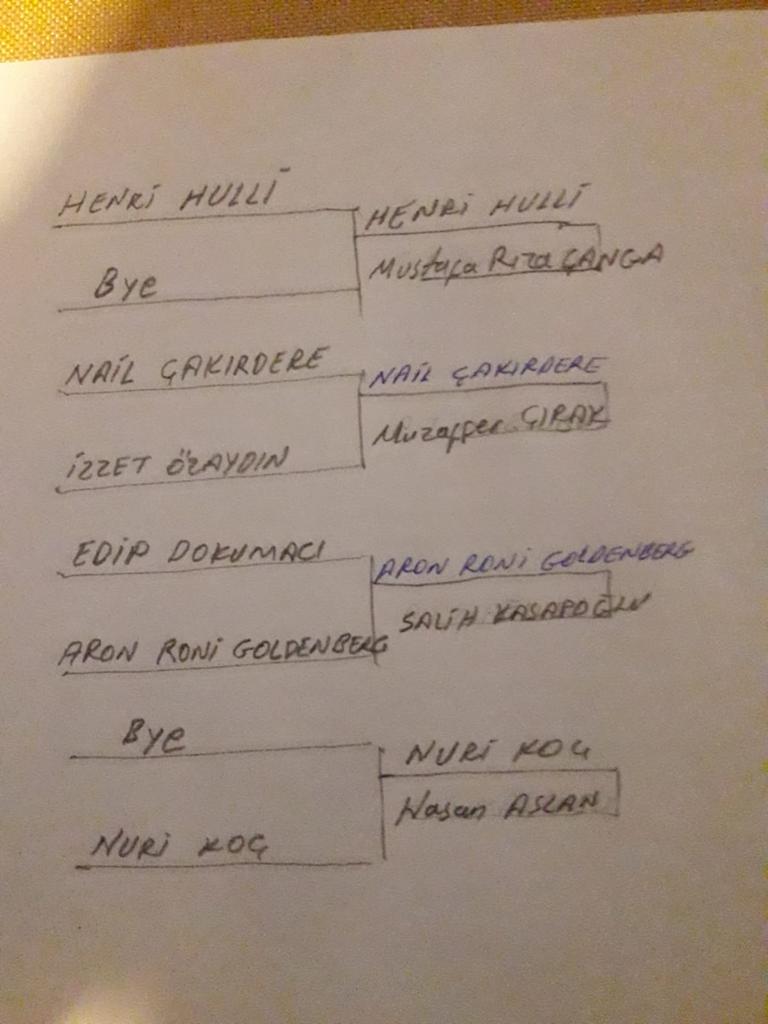 HENRİ HULLİ
HENRİ HULLİ
Bye
Mustafa Rıza ÇANGA
NAİL ÇAKIRDERE
NAİL ÇAKIRDERE
İZZET ÖZAYDIN
Muzaffer ÇIRAK
EDİP DOKUMACI
ARON RONİ GOLDENBERG
ARON RONİ GOLDENBERG
SALİH KASAPOĞLU
Bye
NURİ KOÇ
NURİ KOÇ
Hasan ASLAN